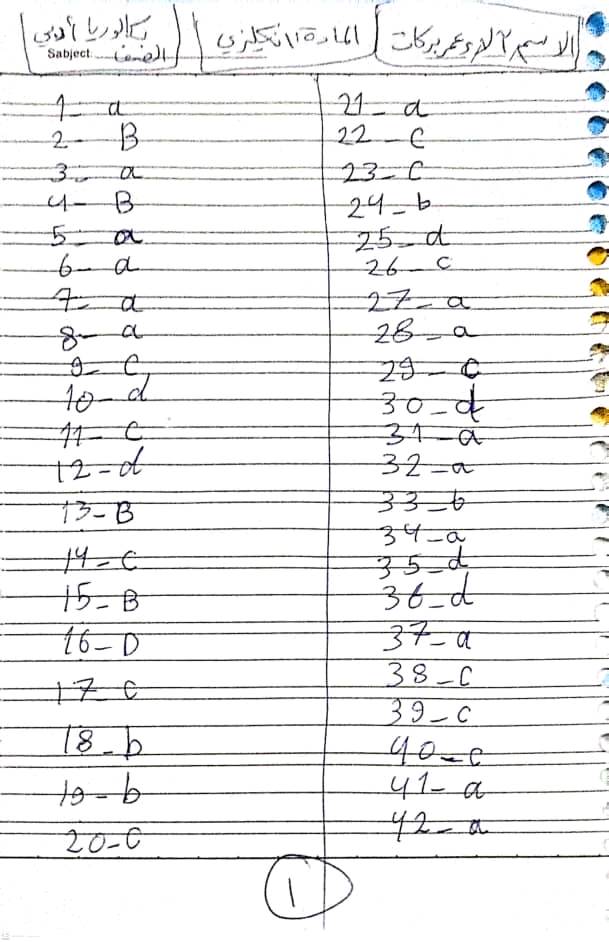 الاسم آلاء عمر بركات
المادة انكليزي
بكالوريا أدبي
Sabject الصف
1- a
2- B
3- a
4- B
5- a
6- a
7- a
8- a
9- C
10- d
11- C
12- d
13- B
14- C
15- B
16- D
17 C
18- b
19- b
20- C
21- a
22- C
23- C
24- b
25- d
26- C
27- a
28- a
29- C
30- d
31- a
32- a
33- b
34- a
35- d
36- d
37- a
38- C
39- C
40- C
41- a
42- a
1